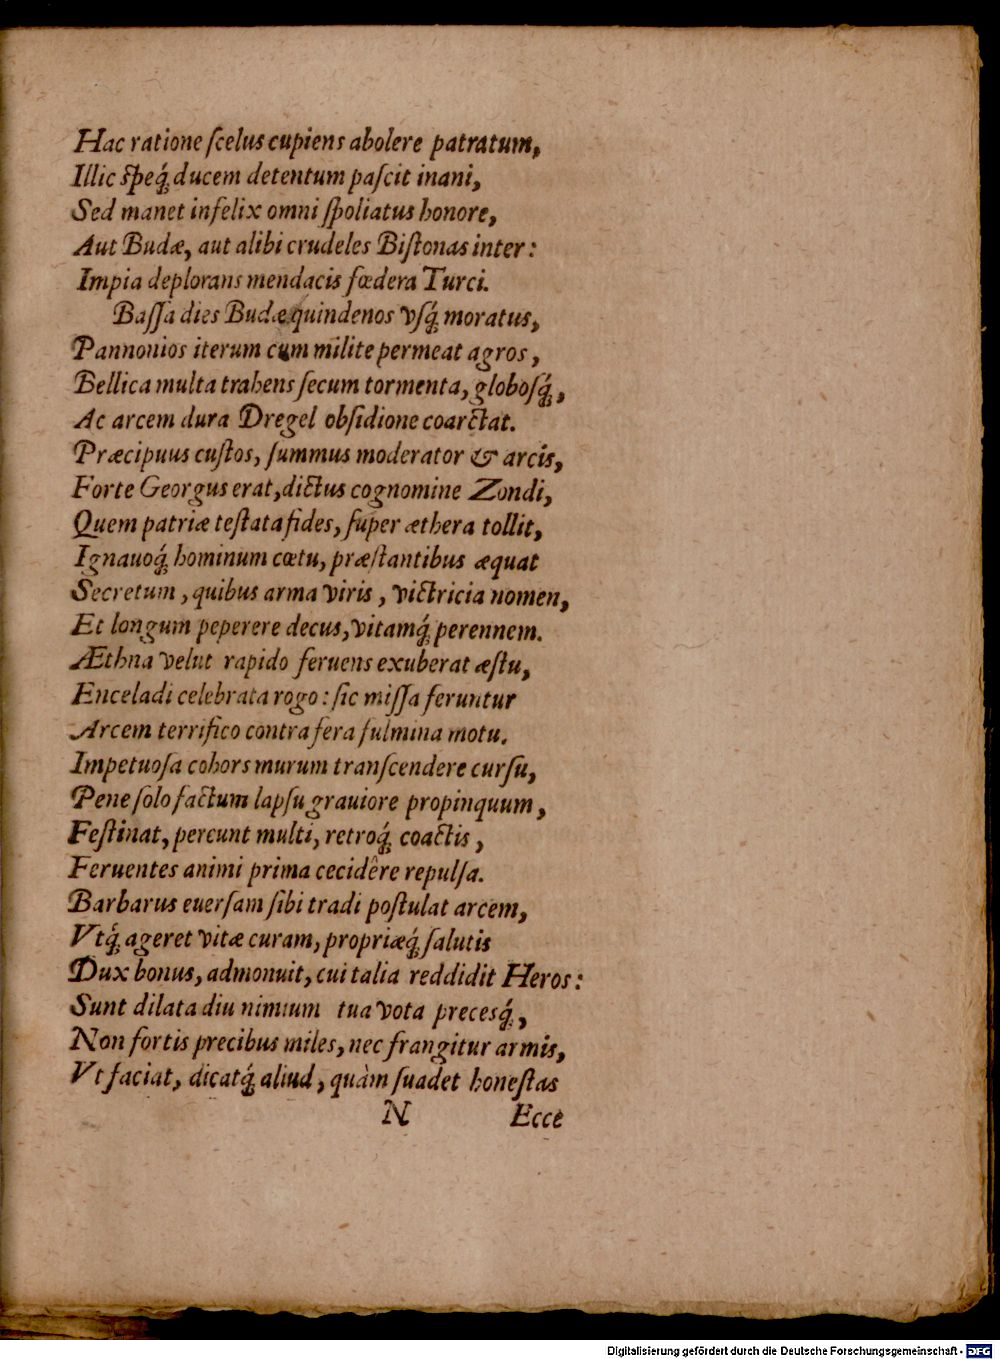 Hac ratione ſcelus cupiens abolere patratum,
Illic ſpeq́; ducem detentum paſcit inani,
Sed manet infelix omni ſpoliatus honore,
Aut Budæ, aut alibi crudeles Biſtonas inter:
Impia deplorans mendacis fœdera Turci.
Baſſa dies Budæ quindenos vſq́; moratus,
Pannonios iterum cum milite permeat agros,
Bellica multa trahens ſecum tormenta, globoſq́;,
Ac arcem dura Dregel obſidione coarctat.
Præcipuus cuſtos, ſummus moderator & arcis,
Forte Georgus erat, dictus cognomine Zondi,
Quem patriæ teſtata fides, ſuper æthera tollit,
Ignauoq́; hominum cœtu, præſtantibus æquat
Secretum, quibus arma viris, victricia nomen,
Et longum peperere decus, vitamq́; perennem.
Æthna velut rapido feruens exuberat æſtu,
Enceladi celebrata rogo: ſic miſſa feruntur
Arcem terrifico contra fera fulmina motu.
Impetuoſa cohors murum tranſcendere curſu,
Pene ſolo factum lapſu grauiore propinquum,
Feſtinat, pereunt multi, retroq́; coactis,
Feruentes animi prima cecidêre repulſa.
Barbarus euerſam ſibi tradi poſtulat arcem,
Vtq́; ageret vitæ curam, propriæq́; ſalutis
Dux bonus, admonuit, cui talia reddidit Heros:
Sunt dilata diu nimium tua vota precesq́;,
Non fortis precibus miles, nec frangitur armis,
Vt faciat, dicatq́; aliud, quàm ſuadet honeſtas
N Ecce
Digitalisierung gefördert durch die Deutsche Forschungsgemeinschaft - DFG